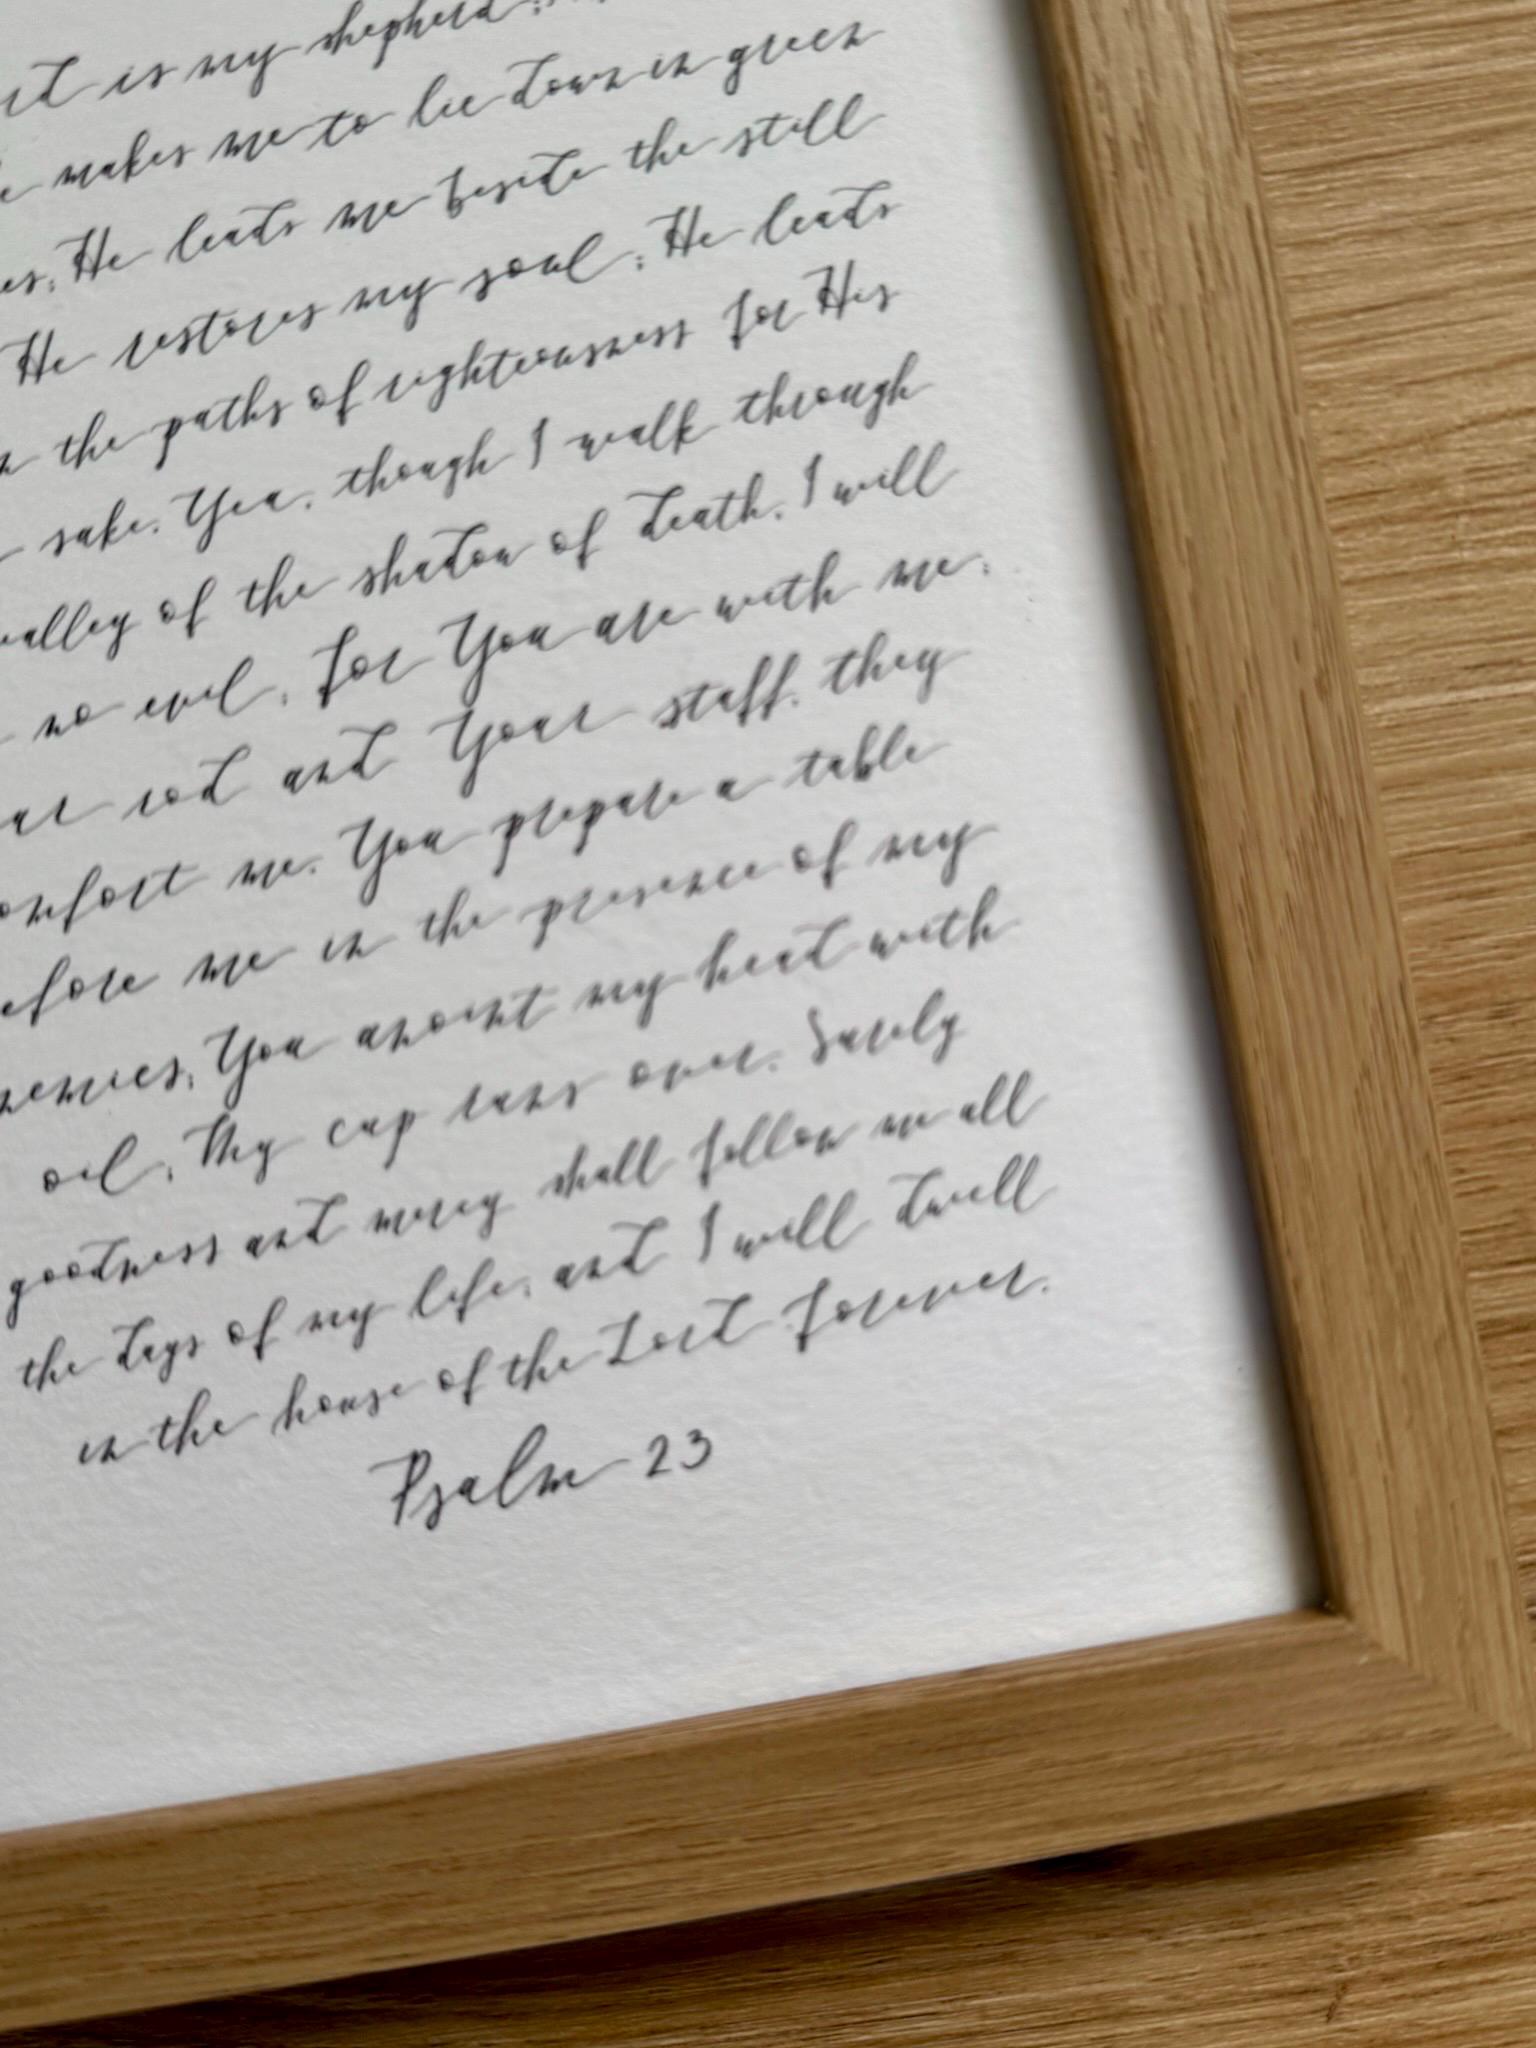 is my shepherd;
makes me to lie down in green
He leads me beside the still
He restores my soul; He leads
the paths of righteousness for His
sake. Yea, though I walk through
valley of the shadow of death, I will
no evil; for You are with me;
rod and Your staff, they
comfort me. You prepare a table
before me in the presence of my
enemies; You anoint my head with
oil; My cup runs over. Surely
goodness and mercy shall follow me all
the days of my life; and I will dwell
in the house of the Lord forever.
Psalm 23